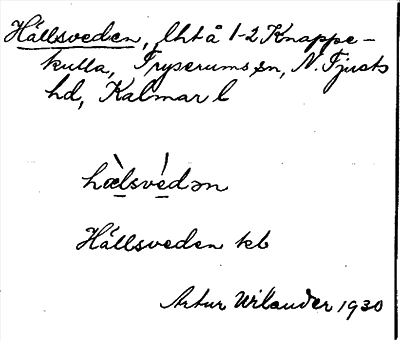 Hällsveden, lht å 1-2 Knappe-
kulla, Tryserums sn, N. Tjusts
hd, Kalmar l
hælsvédən
Hällsveden kb
Artur Wilander 1930